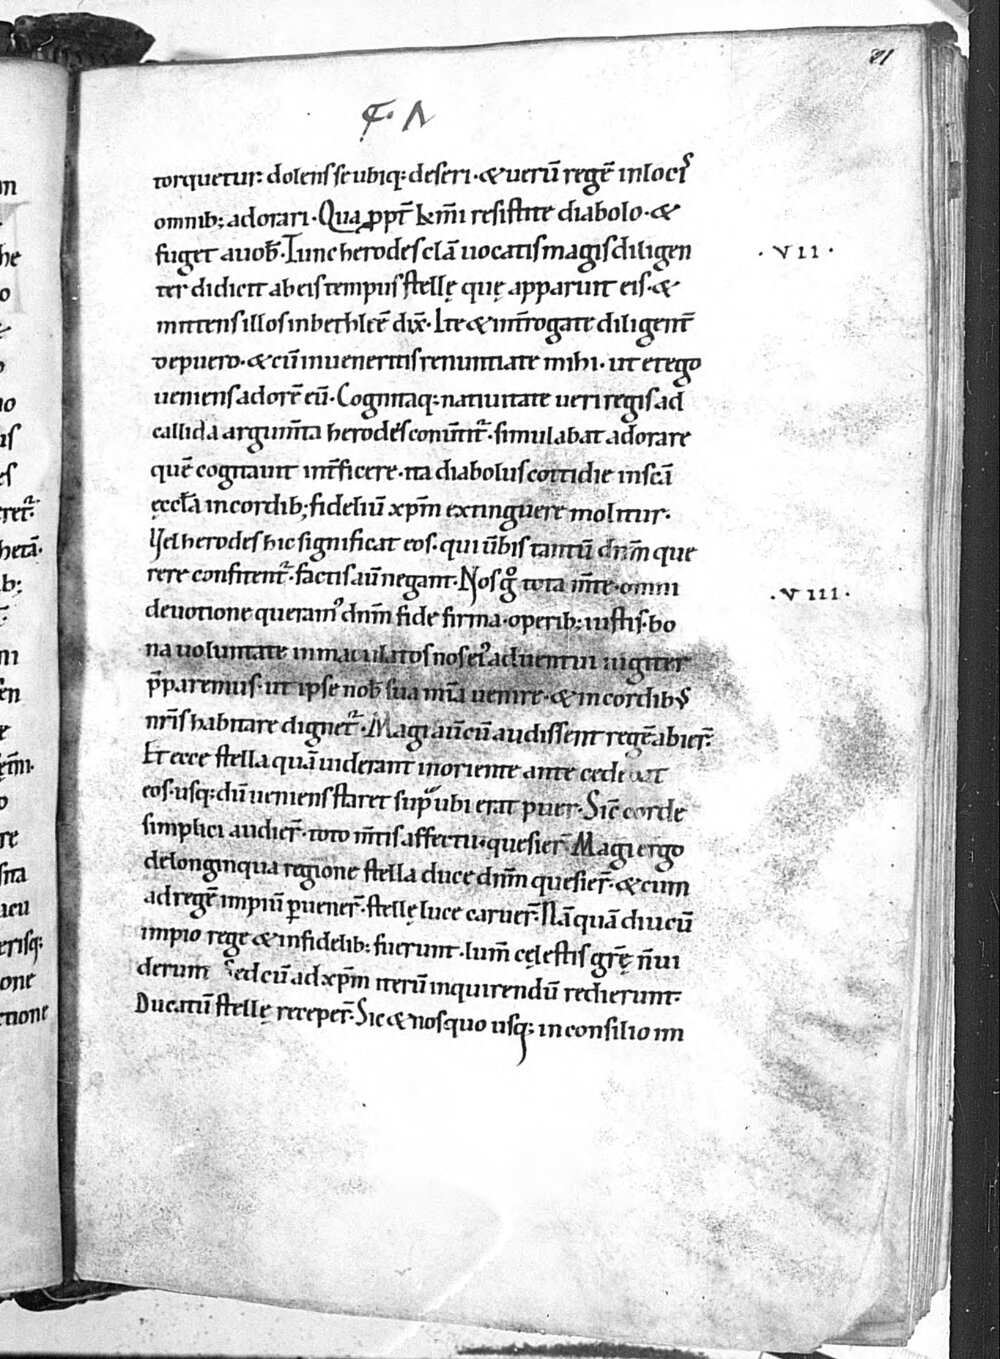 81
torquetur: dolens se ubiq: deseri · & uerū regē in locis
omnib; adorari · Qua ppt̄ k̄m̄i resistite diabolo · &
fuget a uob̄ · Tunc herodes clā uocatis magis diligen
· VII ·
ter didicit ab eis tempus stellę quę apparuit eis · &
mittens illos in bethleē dix̄ · Ite & int̄rogate diligent̄
de puero · & cū inueneritis renuntiate mihi · ut et ego
ueniens adorē eū · Cognitaq: natiuitate ueri regis ad
callida argum̄ta herodes conūtit̄ · simulabat adorare
quē cogitauit int̄ficere · ita diabolus cottidie in sc̄ā
ęccl̄a in cordib; fideliū xp̄m extinguere molitur ·
Vel herodes hic significat eos · qui ūbis tantū dn̄m que
rere confitent̄ · factis aū negant · Nos gͦ tota m̄te · omni
· VIII ·
deuotione queramꝰ dn̄m fide firma · operib: iustis · bo
na uoluntate inmaculatos nos eiꝰ aduentui iugiter
p̄paremus · ut ipse nob̄ sua mīa uenire · & in cordibꝰ
nr̄is habitare dignet̄ · Magi aū cū audissent regē abier̄ ·
Et ecce stella quā uiderant in oriente ante cedebat
eos · usq: dū ueniens staret sup̄ ubi erat puer · Sic corde
simplici audier̄ · toto m̄tis affectu quesier̄ Magi ergo
de longinqua regione stella duce dn̄m quesier̄ · & cum
ad regē impiū ꝑuener̄ · stellę luce caruer̄ · Nā quā diu cū
impio rege & infidelib: fuerunt · lum̄ cęlestis gr̄ę n̄ ui
derunt Sed cū ad xp̄m iterū inquirendū redierunt ·
Ducatū stellę receper̄ · Sic & nos quo usq: in consilio im